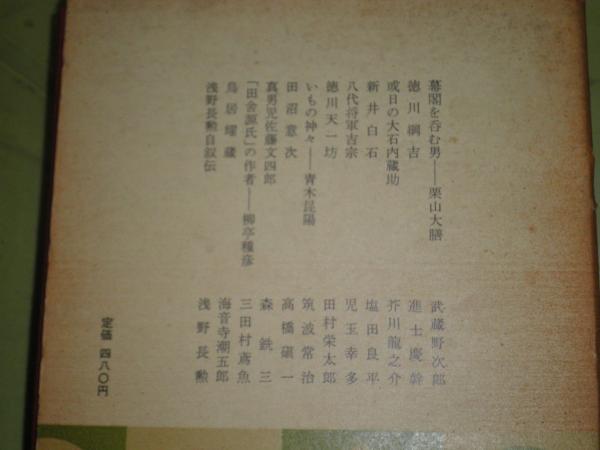 幕閣を呑む男──栗山大膳　武蔵野次郎
徳川綱吉　進士慶幹
或日の大石内蔵助　芥川龍之介
新井白石　塩田良平
八代将軍吉宗　児玉幸多
徳川天一坊　田村栄太郎
いもの神々──青木昆陽　筑波常治
田沼意次　高橋磌一
真男児佐藤文四郎　森銑三
「田舎源氏」の作者──柳亭種彦　三田村鳶魚
鳥居耀蔵　海音寺潮五郎
浅野長勲自叙伝　浅野長勲
定価 四八〇円